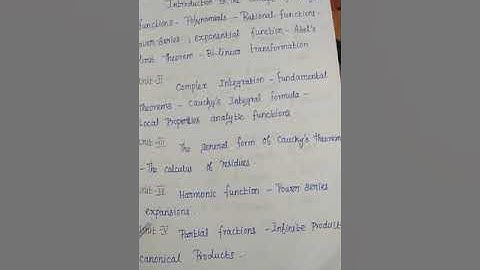 Introduction to the
functions - Polynomials - Rational functions-
Power series, exponential function - Abel's
limit theorem - Bi-linear transformation
Unit-II Complex Integration - fundamental
theorems - Cauchy's Integral formula -
Local Properties analytic functions
Unit-III The general form of Cauchy's theorem
- The calculus of residues.
Unit-IV Harmonic function - Power series
expansions
Unit-V Partial fractions - Infinite Products
canonical Products.